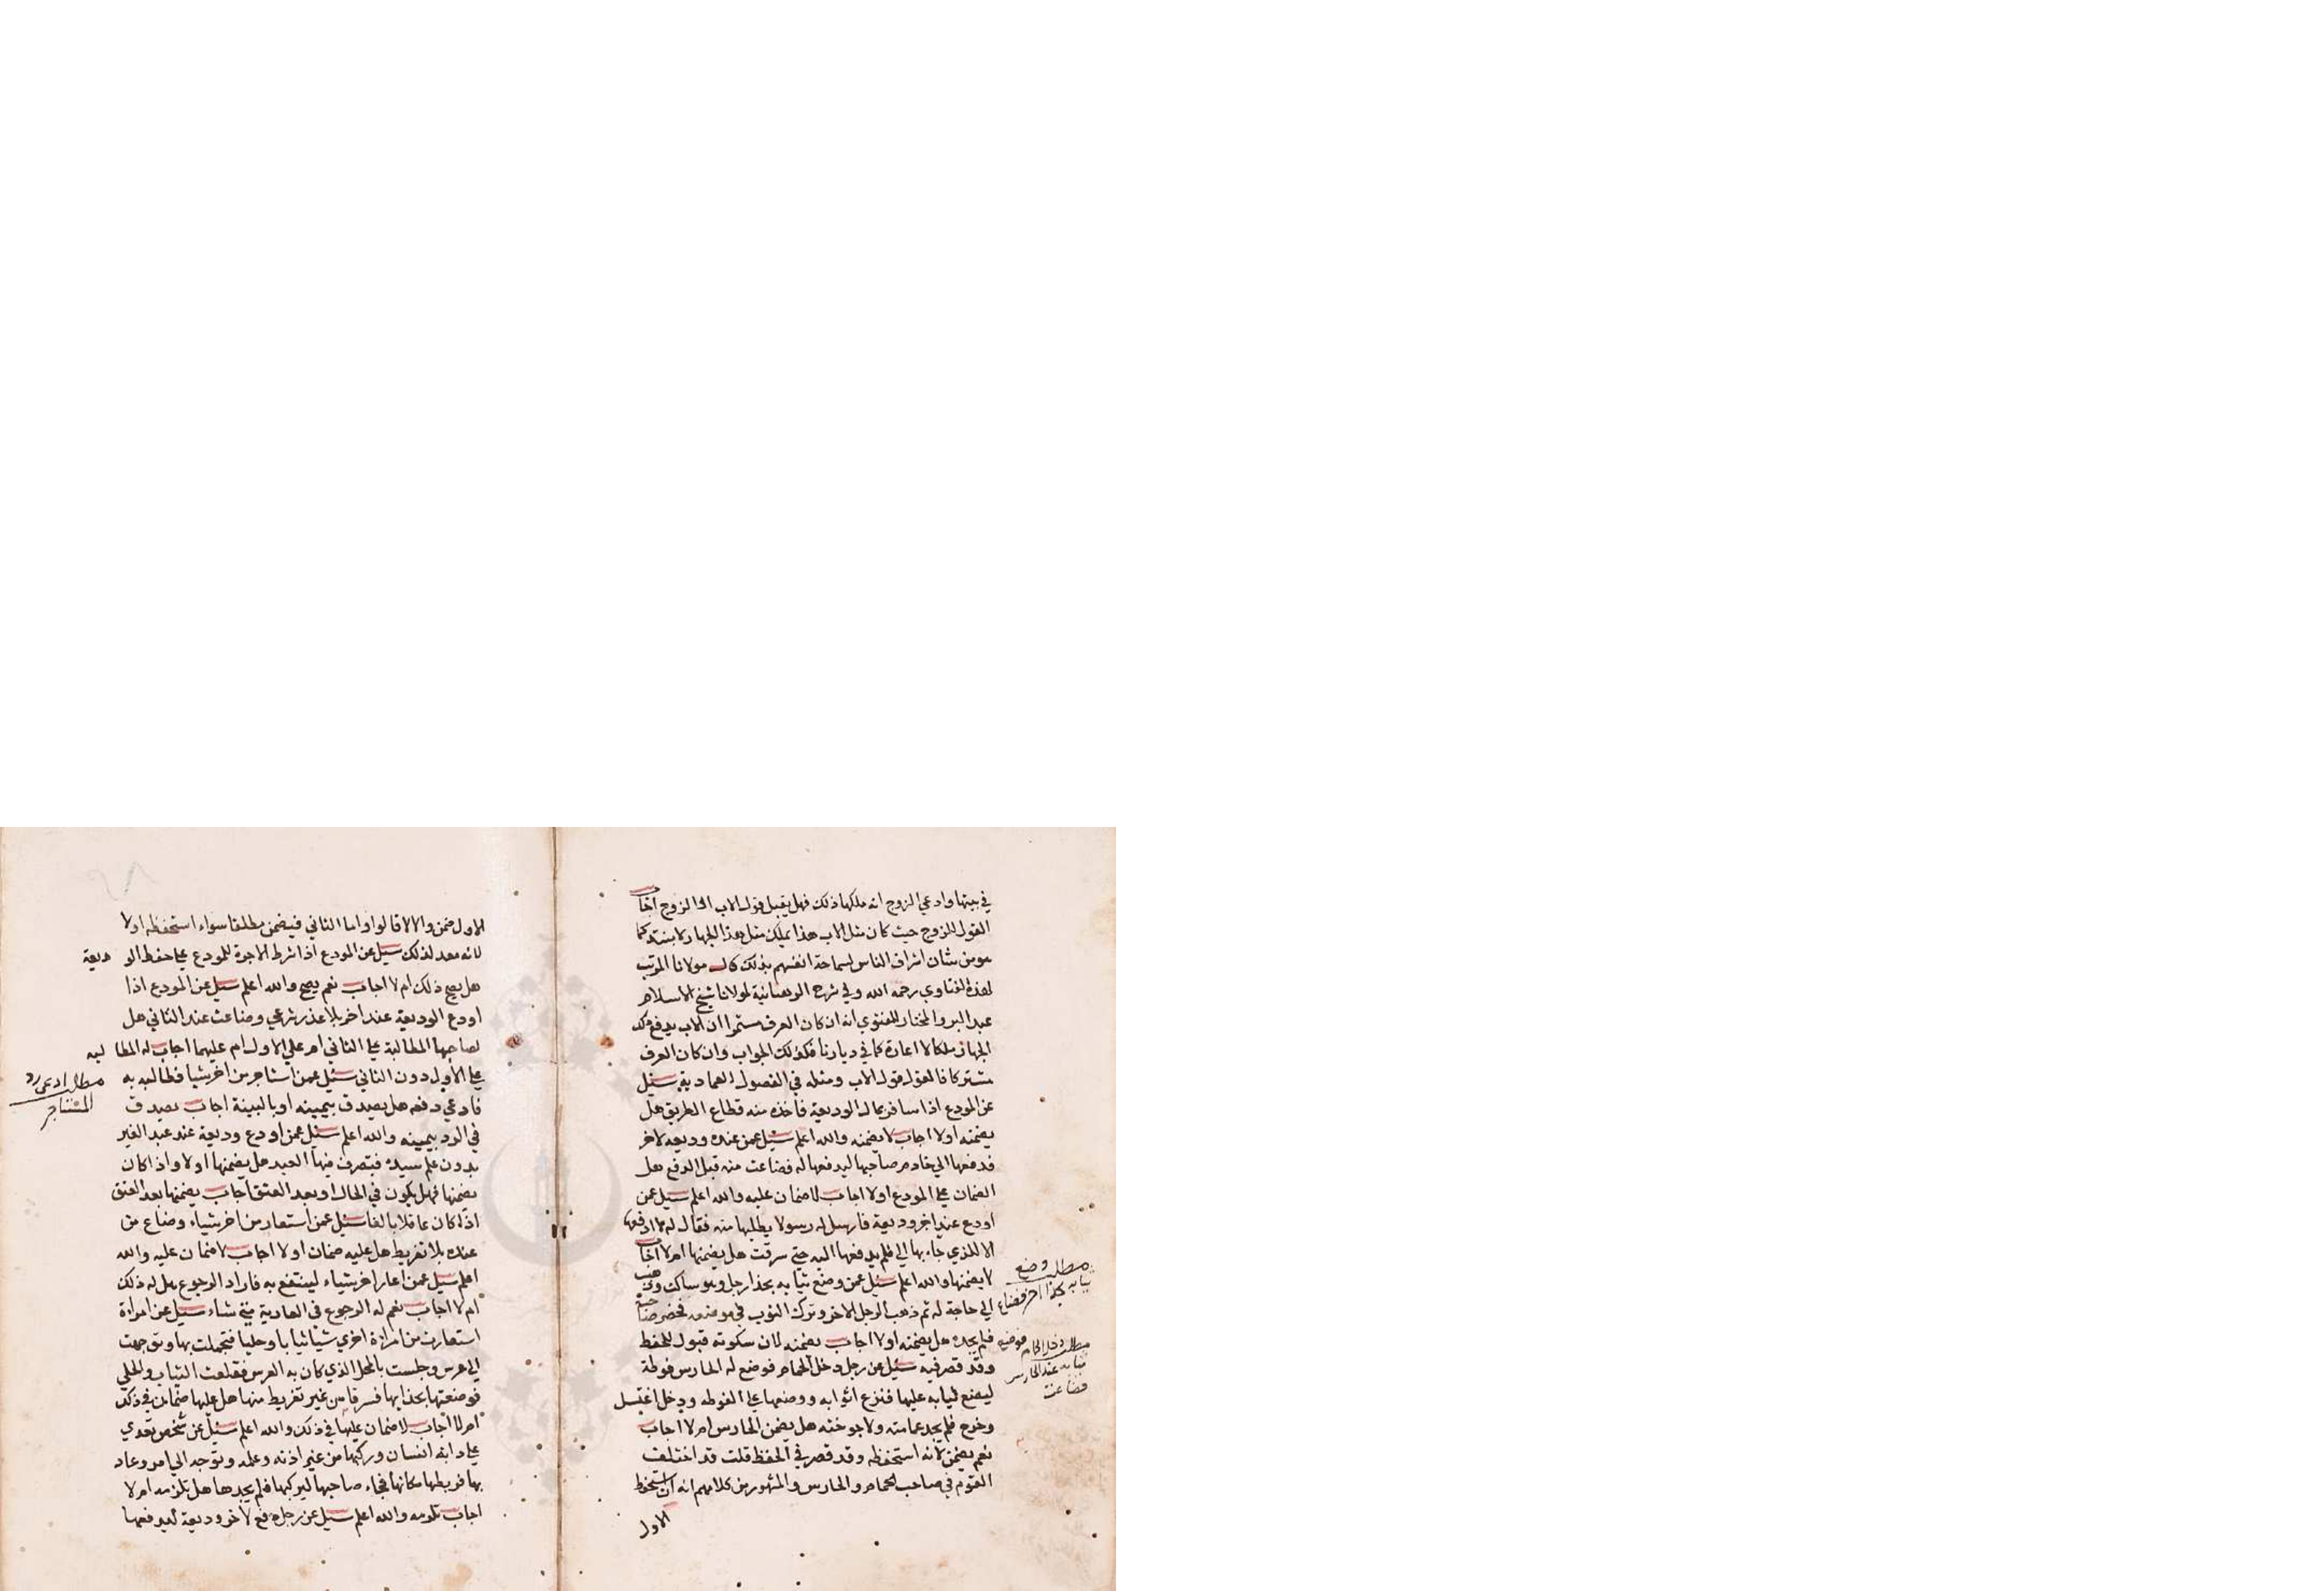 في بيتها وادعي الزوج انه ملكها ذلك فهل يقبل قول الاب او الزوج اجاب
القول للزوج حيث كان مثل الاب هذا يملك مثل هذا الجهاز
هو من شان اشراف الناس لسماحة انفسهم بذلك قال مولانا المرتب
لهذه الفتاوي رحمه الله وفي شرح الوهبانية لمولانا شيخ الاسلام
عبد البر والمختار للفتوي انه ان كان العرف مستمرا ان الاب يدفع ذلك
الجهاز ملكا لا اعارة كما في ديارنا فكذلك الجواب وان كان العرف
مشتركا فالقول قول الاب ومثله في الفصول العمادية سئل
عن المودع اذا سافر بمال الوديعة فاخذه منه قطاع الطريق هل
يضمنه اولا اجاب لا يضمنه والله اعلم سئل عمن عنده وديعه لاخر
فدفعها الي خادم صاحبها ليدفعها له فضاعت منه قبل الدفع هل
الضمان علي المودع اولا اجاب لا ضمان عليه والله اعلم سئل عمن
اودع عند اخر وديعة فارسل له رسولا يطلبها منه فقال له لا ادفعها
الا للذي جاء بها الي فلم يدفعها اليه حتي سرقت هل يضمنها ام لا اجاب
لا يضمنها والله اعلم سئل عمن وضع ثيابه بحذا رجل وهو ساكت وذهب
الي حاجة له ثم ذهب الرجل الاخر وترك الثوب في موضعه فحضر صاحبه
فلم يجده هل يضمنه اولا اجاب يضمنه لان سكوته قبول للحفظ
وقد قصر فيه سئل عن رجل دخل الحمام فوضع له الحارس فوطة
ليضع ثيابه عليها فنزع اثوابه ووضعها علي الفوطه ودخل اغتسل
وخرج فلم يجد عمامته ولا جوخته هل يضمن الحارس ام لا اجاب
نعم يضمن لانه استحفظه وقد قصر في الحفظ قلت قد اختلف
القوم في صاحب الحمام والحارس والمشهور من كلامهم انه ان استحفظ
الاول
مطلب وضع
ثيابه بحذا اخر فضاع
مطلب دخل الحمام فوضع
ثيابه عند الحارس
فضاعت
الاول ضمن والا لا قالوا واما الثاني فيضمن مطلقا سواء استحفظه اولا
لانه معد لذلك سئل عن المودع اذا شرط الاجرة للمودع علي حفظ الوديعة
هل يصح ذلك ام لا اجاب نعم يصح والله اعلم سئل عن المودع اذا
اودع الوديعة عند اخر بلا عذر شرعي وضاعت عند الثاني هل
لصاحبها المطالبة علي الثاني ام علي الاول ام عليهما اجاب له المطالبه
علي الاول دون الثاني سئل عمن استاجر من اخر شيا فطالبه به
فادعي دفعه هل يصدق بيمينه او بالبينة اجاب يصدق
في الرد بيمينه والله اعلم سئل عمن اودع وديعة عند عبد الغير
بدون علم سيده فتصرف فيها العبد هل يضمنها اولا واذا كان
يضمنها فهل يكون في الحال او بعد العتق اجاب يضمنها بعد العتق
اذا كان عاقلا بالغا سئل عمن استعار من اخر شياء وضاع من
عنده بلا تفريط هل عليه ضمان اولا اجاب لا ضمان عليه والله
اعلم سئل عمن اعار اخر شياء لينتفع به فاراد الرجوع هل له ذلك
ام لا اجاب نعم له الرجوع في العارية متي شاء سئل عن امراة
استعارت من امراة اخري شيا ثيابا وحليا فتجملت بها وتوجهت
الي عرس وجلست بالمحل الذي كان به العرس فقلعت الثياب والحلي
فوضعتها بحذايها فسرقا من غير تفريط منها هل عليها ضمان في ذلك
ام لا اجاب لا ضمان عليها في ذلك والله اعلم سئل عن شخص تعدي
علي دابة انسان وركبها من غير اذنه وعلمه وتوجه الي امر وعاد
بها فربطها مكانها فجاء صاحبها ليركبها فلم يجدها هل تلزمه ام لا
اجاب تلزمه والله اعلم سئل عن رجل دفع لاخر وديعة ليدفعها
مطلب ادعى رد
المستاجر